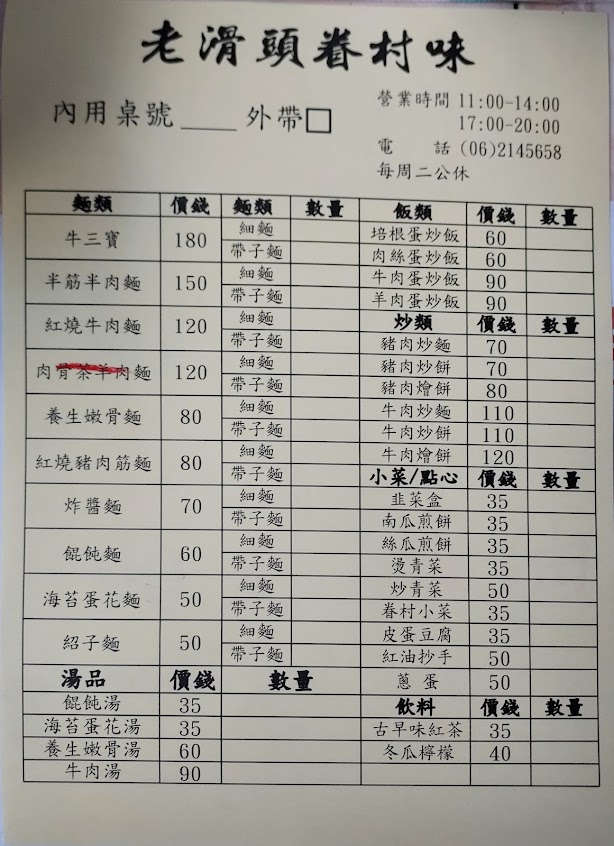 老滑頭眷村味
內用桌號____ 外帶□
營業時間 11:00-14:00
17:00-20:00
電 話 (06)2145658
每周二公休
麵類 價錢 麵類 數量
牛三寶 180 細麵
帶子麵
半筋半肉麵 150 細麵
帶子麵
紅燒牛肉麵 120 細麵
帶子麵
肉骨茶羊肉麵 120 細麵
帶子麵
養生嫩骨麵 80 細麵
帶子麵
紅燒豬肉筋麵 80 細麵
帶子麵
炸醬麵 70 細麵
帶子麵
餛飩麵 60 細麵
帶子麵
海苔蛋花麵 50 細麵
帶子麵
紹子麵 50 細麵
帶子麵
湯品 價錢 數量
餛飩湯 35
海苔蛋花湯 35
養生嫩骨湯 60
牛肉湯 90
飯類 價錢 數量
培根蛋炒飯 60
肉絲蛋炒飯 60
牛肉蛋炒飯 90
羊肉蛋炒飯 90
炒類 價錢 數量
豬肉炒麵 70
豬肉炒餅 70
豬肉燴餅 80
牛肉炒麵 110
牛肉炒餅 110
牛肉燴餅 120
小菜/點心 價錢 數量
韭菜盒 35
南瓜煎餅 35
絲瓜煎餅 35
燙青菜 35
炒青菜 50
眷村小菜 35
皮蛋豆腐 35
紅油抄手 50
蔥 蛋 50
飲料 價錢 數量
古早味紅茶 35
冬瓜檸檬 40